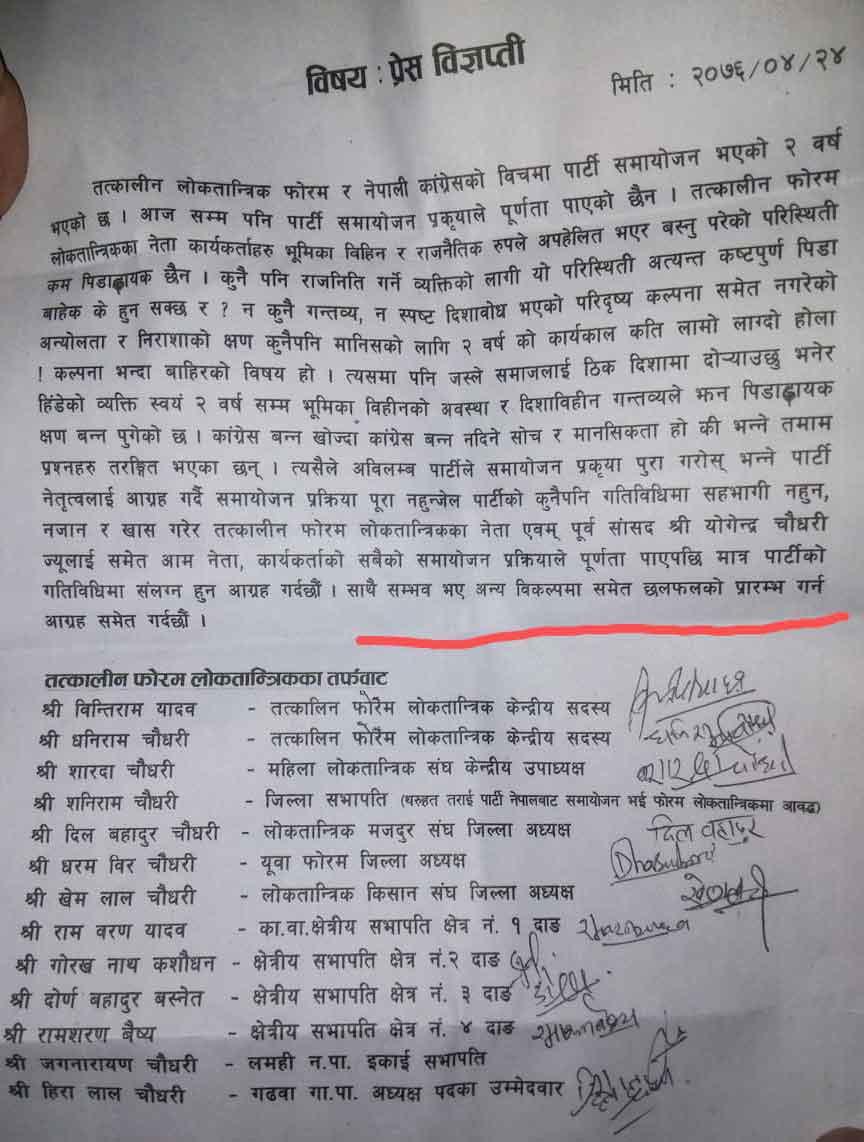 विषय : प्रेस विज्ञप्ती
मिति : २०७६/०४/२४
तत्कालीन लोकतान्त्रिक फोरम र नेपाली कांग्रेसको विचमा पार्टी समायोजन भएको २ वर्ष
भएको छ । आज सम्म पनि पार्टी समायोजन प्रकृयाले पूर्णता पाएको छैन । तत्कालीन फोरम
लोकतान्त्रिकका नेता कार्यकर्ताहरु भूमिका विहिन र राजनैतिक रुपले अपहेलित भएर बस्नु परेको परिस्थिती
कम पिडाढायक छैन । कुनै पनि राजनिति गर्ने व्यक्तिको लागी यो परिस्थिती अत्यन्त कष्टपुर्ण पिडा
बाहेक के हुन सक्छ र ? न कुनै गन्तव्य, न स्पष्ट दिशावोध भएको परिदृष्य कल्पना समेत नगरेको
अन्योलता र निराशाको क्षण कुनैपनि मानिसको लागि २ वर्ष को कार्यकाल कति लामो लाग्दो होला
! कल्पना भन्दा बाहिरको विषय हो । त्यसमा पनि जस्ले समाजलाई ठिक दिशामा दोऱ्याउछु भनेर
हिंडेको व्यक्ति स्वयं २ वर्ष सम्म भूमिका विहीनको अवस्था र दिशाविहीन गन्तव्यले झन पिडाढायक
क्षण बन्न पुगेको छ । कांग्रेस बन्न खोज्दा कांग्रेस बन्न नदिने सोच र मानसिकता हो की भन्ने तमाम
प्रश्नहरु तरङ्गित भएका छन् । त्यसैले अविलम्ब पार्टीले समायोजन प्रकृया पुरा गरोस् भन्ने पार्टी
नेतृत्वलाई आग्रह गर्दै समायोजन प्रक्रिया पूरा नहुन्जेल पार्टीको कुनैपनि गतिविधिमा सहभागी नहुन,
नजान र खास गरेर तत्कालीन फोरम लोकतान्त्रिकका नेता एवम् पूर्व सांसद श्री योगेन्द्र चौधरी
ज्यूलाई समेत आम नेता, कार्यकर्ताको सबैको समायोजन प्रक्रियाले पूर्णता पाएपछि मात्र पार्टीको
गतिविधिमा संलग्न हुन आग्रह गर्दछौं । साथै सम्भव भए अन्य विकल्पमा समेत छलफलको प्रारम्भ गर्न
आग्रह समेत गर्दछौं ।
तत्कालीन फोरम लोकतान्त्रिकका तर्फवाट
श्री विन्तिराम यादव - तत्कालिन फोरम लोकतान्त्रिक केन्द्रीय सदस्य
श्री धनिराम चौधरी - तत्कालिन फोरम लोकतान्त्रिक केन्द्रीय सदस्य
श्री शारदा चौधरी - महिला लोकतान्त्रिक संघ केन्द्रीय उपाध्यक्ष
श्री शनिराम चौधरी - जिल्ला सभापति (थरुहत तराई पार्टी नेपालबाट समायोजन भई फोरम लोकतान्त्रिकमा आवद्ध)
श्री दिल बहादुर चौधरी - लोकतान्त्रिक मजदुर संघ जिल्ला अध्यक्ष दिल वहादुर
श्री धरम विर चौधरी - यूवा फोरम जिल्ला अध्यक्ष
श्री खेम लाल चौधरी - लोकतान्त्रिक किसान संघ जिल्ला अध्यक्ष
श्री राम वरण यादव - का.वा.क्षेत्रीय सभापति क्षेत्र नं. १ दाङ
श्री गोरख नाथ कशौधन - क्षेत्रीय सभापति क्षेत्र नं.२ दाङ
श्री दोर्ण बहादुर बस्नेत - क्षेत्रीय सभापति क्षेत्र नं. ३ दाङ
श्री रामशरण बैष्य - क्षेत्रीय सभापति क्षेत्र नं. ४ दाङ
श्री जगनारायण चौधरी - लमही न.पा. इकाई सभापति
श्री हिरा लाल चौधरी - गढवा गा.पा. अध्यक्ष पदका उम्मेदवार